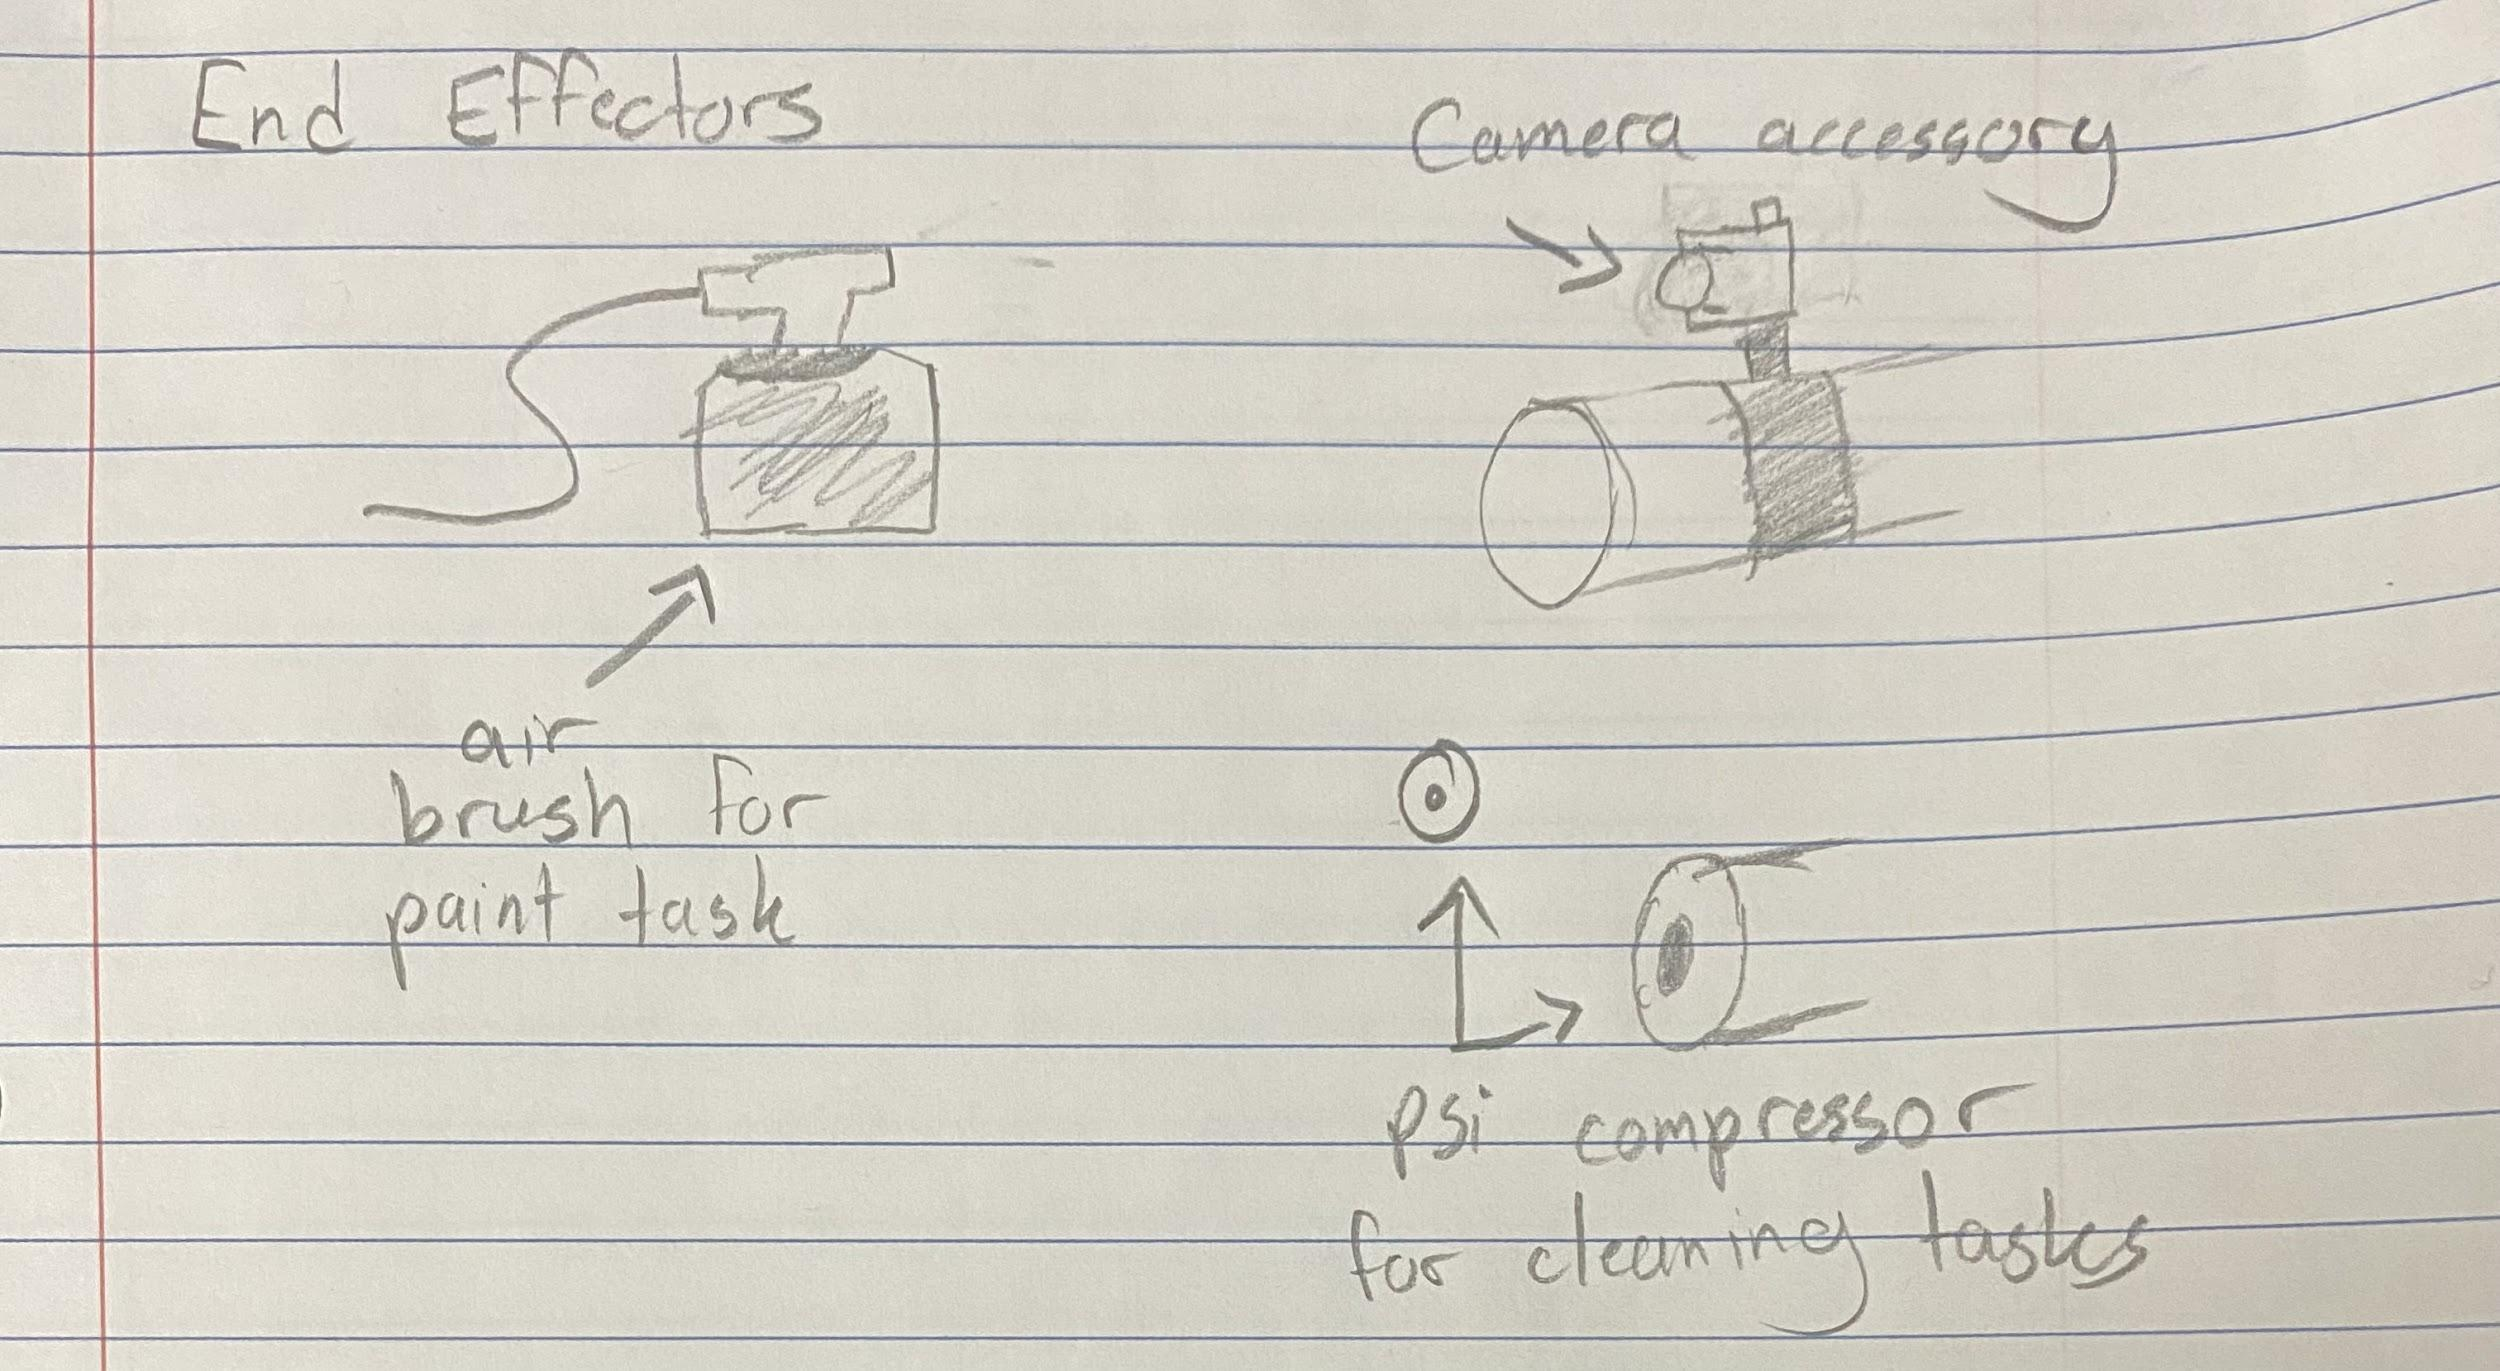 End Effectors
Camera accessory
air
brush for
paint task
psi compressor
for cleaning tasks